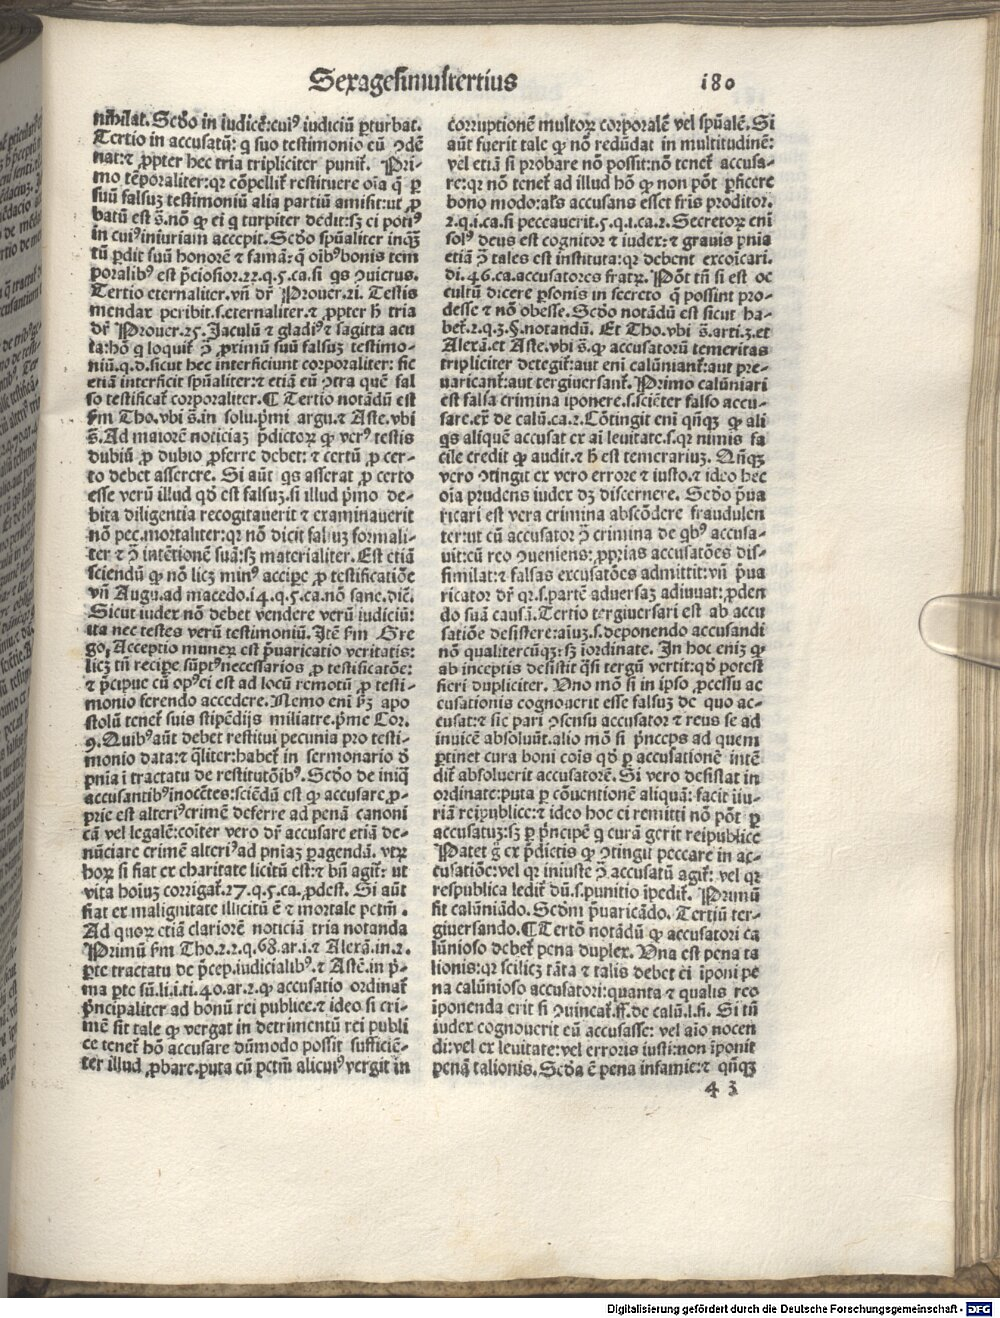 Sexagesimustertius
180
nihilat. Scḋo in iudicē: cuiꝰ iudiciū ꝑturbat.
Tertio in accusatū: q̇ suo testimonio eū ꝯdē
nat: ⁊ ꝓpter hec tria tripliciter puniť. Pri-
mo tēporaliter: qꝛ cōpelliť restituere oīa q̄ ꝑ
suū falsuꝫ testimoniū alia partiū amisit: ut ꝓ
batū est s̄. nō ꝙ ei q̇ turpiter dedit: sꝫ ci potiꝰ
in cuiꝰ iniuriam accepit. Scḋo spūaliter inqꝫ
tū ꝑdit suū honorē ⁊ famā: q̄ oībꝰ bonis tem
poralibꝰ est p̄ciosior. 22. q. 5. ca. si q̇s ꝯuictus.
Tertio eternaliter. vn̄ dr̄ Prouer. 21. Testis
mendax peribit. s. eternaliter. ⁊ ꝓpter h̄ tria
dr̄ Prouer. 25. Jaculū ⁊ gladiꝰ ⁊ sagitta acu
ta: hō q̇ loquiť ꝯ̄ ꝓximū suū falsuꝫ testimo-
niū. q. d. sicut hec interficiunt corporaliter: sic
etiā interficit spūaliter: ⁊ etiā eū ꝯtra quē fal
so testificať corporaliter. ¶ Tertio notādū est
ẜm Tho. vbi s̄. in solu. p̄mi argu. ⁊ Aste. vbi
s̄. Ad maiorē noticiaꝫ p̄dictoꝝ ꝙ verꝰ testis
dubiū ꝓ dubio ꝓferre debet: ⁊ certū ꝓ cer-
to debet asserere. Si aūt q̇s asserat ꝓ certo
esse verū illud qḋ est falsuꝫ. si illud p̄mo de-
bita diligentia recogitauerit ⁊ examinauerit
nō pec. mortaliter: qꝛ nō dicit falsuꝫ formali-
ter ⁊ ꝯ̄ intētionē suā: sꝫ materialiter. Est etiā
sciendū ꝙ nō licꝫ minꝰ accipe ꝓ testificatiōe
vn̄ Augu. ad macedo. 14. q. 5. ca. nō sane. dic̄.
Sicut iudex nō debet vendere verū iudiciū:
ita nec testes verū testimoniū. Itē ẜm Gre
go. Acceptio muneꝝ est p̄uaricatio veritatis:
licꝫ tn̄ recipe sūptꝰ necessarios ꝓ testificatōe:
⁊ p̄cipue cū opꝰ ei est ad locū remotū ꝓ testi-
monio ferendo accedere. Nemo eni ẜꝫ apo
stolū teneť suis stipēdijs militare. prime Cor.
9. Quibꝰ aūt debet restitui pecunia pro testi-
monio data: ⁊ q̄liter: habeť in sermonario ḋ
pnīa i tractatu de restitutōibꝰ. Scḋo de iniq̄
accusantibꝰ inocētes: sciēdū est ꝙ accusare ꝓ-
prie est alteriꝰ crimē deferre ad penā canoni
cā vel legalē: coīter vero dr̄ accusare etiā de-
nūciare crimē alteriꝰ ad pnīaꝫ ꝑagendā. vtrꝝ
hoꝝ si fiat ex charitate licitū est: ⁊ bn̄ agiť: ut
vita hoīuꝫ corrigať. 27. q. 5. ca. ꝓdest. Si aūt
fiat ex malignitate illicitū ē ⁊ mortale pctm̄.
Ad quoꝝ etiā clariorē noticiā tria notanda
Primū ẜm Tho. 2. 2. q. 68. ar. i. ⁊ Alexā. in. 2.
ꝑte tractatu de p̄cep. iudicialibꝰ. ⁊ Astē. in p̄-
ma ꝑte sū. li. i. ti. 40. ar. 2. ꝙ accusatio ordinať
p̄ncipaliter ad bonū rei publice. ⁊ ideo si cri-
mē sit tale ꝙ vergat in detrimentū rei publi
ce teneť hō accusare dūmodo possit sufficiē-
ter illud ꝓbare. puta cū pctm̄ alicuiꝰ vergit in
corruptionē multoꝝ corporalē vel spūalē. Si
aūt fuerit tale ꝙ nō redūdat in multitudinē:
vel etiā si probare nō possit: nō teneť accusa-
re: qꝛ nō teneť ad illud hō ꝙ non pōt ꝑficere
bono modo: alꝰ accusans esset fr̄is proditor.
2. q. i. ca. si peccauerit. 5. q. i. ca. 2. Secretoꝝ eni
solꝰ deus est cognitor ⁊ iudex: ⁊ grauis pnīa
etiā ꝯ̄ tales est instituta: qꝛ debent excōīcari.
di. 46. ca. accusatores fratꝝ. Pōt tn̄ si est oc
cultū dicere ꝑsonis in secreto q̄ possint pro-
desse ⁊ nō obesse. Scḋo notādū est sicut ha-
beť. 2. q. 3. §. notandū. Et Tho. vbi s̄. arti. 3. et
Alexā. et Aste. vbi s̄. ꝙ accusatorū temeritas
tripliciter detegiť: aut eni calūnianť: aut pre-
uaricanť: aut tergiuersanť. Primo calūniari
est falsa crimina iponere. s. sciēter falso accu-
sare. ex̄ de calū. ca. 2. Cōtingit eni qn̄qꝫ ꝙ ali
q̇s aliquē accusat ex ai leuitate. s. qꝛ nimis fa
cile credit ꝙ audit. ⁊ h̄ est temerariuꝫ. Qn̄qꝫ
vero ꝯtingit ex vero errore ⁊ iusto. ⁊ ideo hec
oīa prudens iudex dꝫ discernere. Scḋo p̄ua
ricari est vera crimina abscōdere fraudulen
ter: ut cū accusator ꝯ̄ crimina de qbꝰ accusa-
uit: cū reo ꝯueniens: ꝓprias accusatōes dis-
similat: ⁊ falsas excusatōes admittit: vn̄ p̄ua
ricator dr̄ qꝛ. s. partē aduersaꝫ adiuuat: ꝓden
do suā causā. Tertio tergiuersari est ab accu
satiōe desistere: aīuꝫ. s. deponendo accusandi
nō qualitercūqꝫ: sꝫ iordinate. In hoc enīꝫ ꝙ
ab inceptis desistit q̄si tergū vertit: qḋ potest
fieri dupliciter. Vno mō si in ipso ꝓcessu ac
cusationis cognouerit esse falsuꝫ de quo ac-
cusat: ⁊ sic pari ꝯsensu accusator ⁊ reus se ad
inuicē absoluūt. alio mō si p̄nceps ad quem
ꝑtinet cura boni cōis qḋ ꝑ accusationē intē
diť absoluerit accusatorē. Si vero desistat in
ordinate: puta ꝑ cōuentionē aliquā: facit iiu-
riā reipublice: ⁊ ideo hoc ei remitti nō pōt ꝑ
accusatuꝫ: sꝫ ꝑ p̄ncipē q̇ curā gerit reipublice
Patet g̊ ex p̄dictis ꝙ ꝯtingit peccare in ac-
cusatiōe: vel qꝛ iniuste ꝯ̄ accusatū agiť: vel qꝛ
respublica lediť dū. s. punitio ipediť. Primū
fit calūniādo. Scḋm p̄uaricādo. Tertiū ter-
giuersando. ¶ Tertō notādū ꝙ accusatori ca
lūnioso debeť pena duplex. Vna est pena ta
lionis: qꝛ scilicꝫ tāta ⁊ talis debet ei iponi pe
na calūnioso accusatori: quanta ⁊ qualis reo
iponenda erit si ꝯuincať. ff. de calū. l. fi. Si tn̄
iudex cognouerit eū accusasse: vel aīo nocen
di: vel ex leuitate: vel erroris iusti: non iponit
penā talionis. Scḋa ē pena infamie: ⁊ qn̄qꝫ
4 3
Digitalisierung gefördert durch die Deutsche Forschungsgemeinschaft - DFG